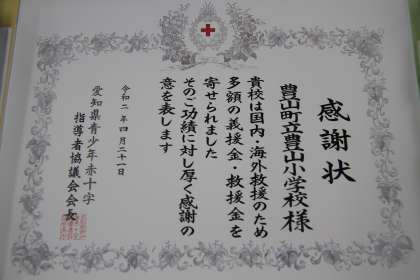 感謝状
豊山町立豊山小学校様
貴校は国内・海外救援のため
多額の義援金・救援金を
寄せられました
そのご功績に対し厚く感謝の
意を表します
令和二年四月二十一日
愛知県青少年赤十字
指導者協議会会長